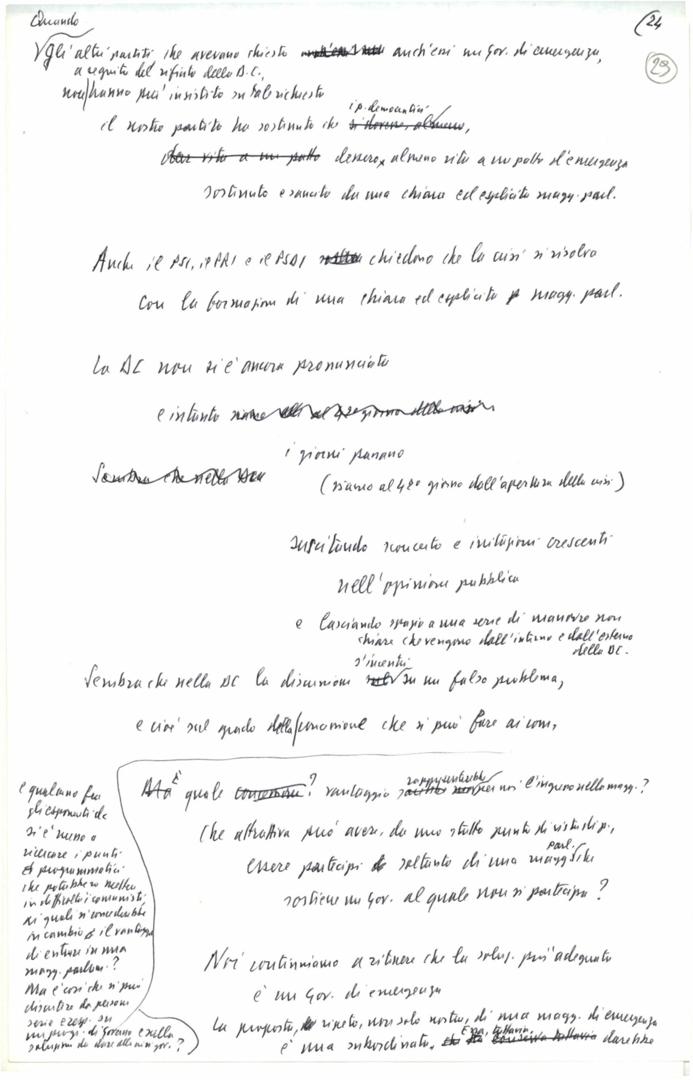 Quando
(24
23
gli altri partiti che avevano chiesto anch'essi un Gov. di emergenza,
a seguito del rifiuto della D.C.,
non hanno più insistito su tale richiesta
i p. democratici
il nostro partito ha sostenuto che si dovesse, almeno,
dar vita a un patto dessero almeno vita a un patto d'emergenza
sostenuto e sancito da una chiara ed esplicita magg. parl.
Anche il PSI, il PRI e il PSDI chiedono che la crisi si risolva
con la formazione di una chiara ed esplicita magg. parl.
La DC non si è ancora pronunciata
e intanto siamo al giorno della crisi
i giorni passano
Sembra che nella
(siamo al 42º giorno dall'apertura della crisi)
suscitando sconcerto e irritazioni crescenti
nell'opinione pubblica
e lasciando spazio a una serie di manovre non
chiare che vengono dall'interno e dall'esterno
della DC.
s'incentri
Sembra che nella DC la discussione su un falso problema,
e cioè sul grado della concessione che si può fare ai com.
Ma è quale concessione? vantaggio rappresenterebbe per noi l'ingresso nella magg.?
Che attrattiva può avere, da uno stretto punto di vista di p.,
essere partecipi soltanto di una magg. parl. che
sostiene un Gov. al quale non si partecipa?
e qualcuno fra
gli esponenti dc
si è messo a
ricercare i punti
programmatici
che potrebbero mettere
in difficoltà i comunisti
ai quali si concederebbe
in cambio il vantaggio
di entrare in una
magg. parlam.?
Ma è così che si può
discutere da persone
serie e resp. su
un progr. di governo e sulla
soluzione da dare alla crisi gov.?
Noi continuiamo a ritenere che la soluz. più adeguata
è un Gov. di emergenza
La proposta, ripeto, non solo nostra, di una magg. di emergenza
è una subordinata. Essa, tuttavia, darebbe